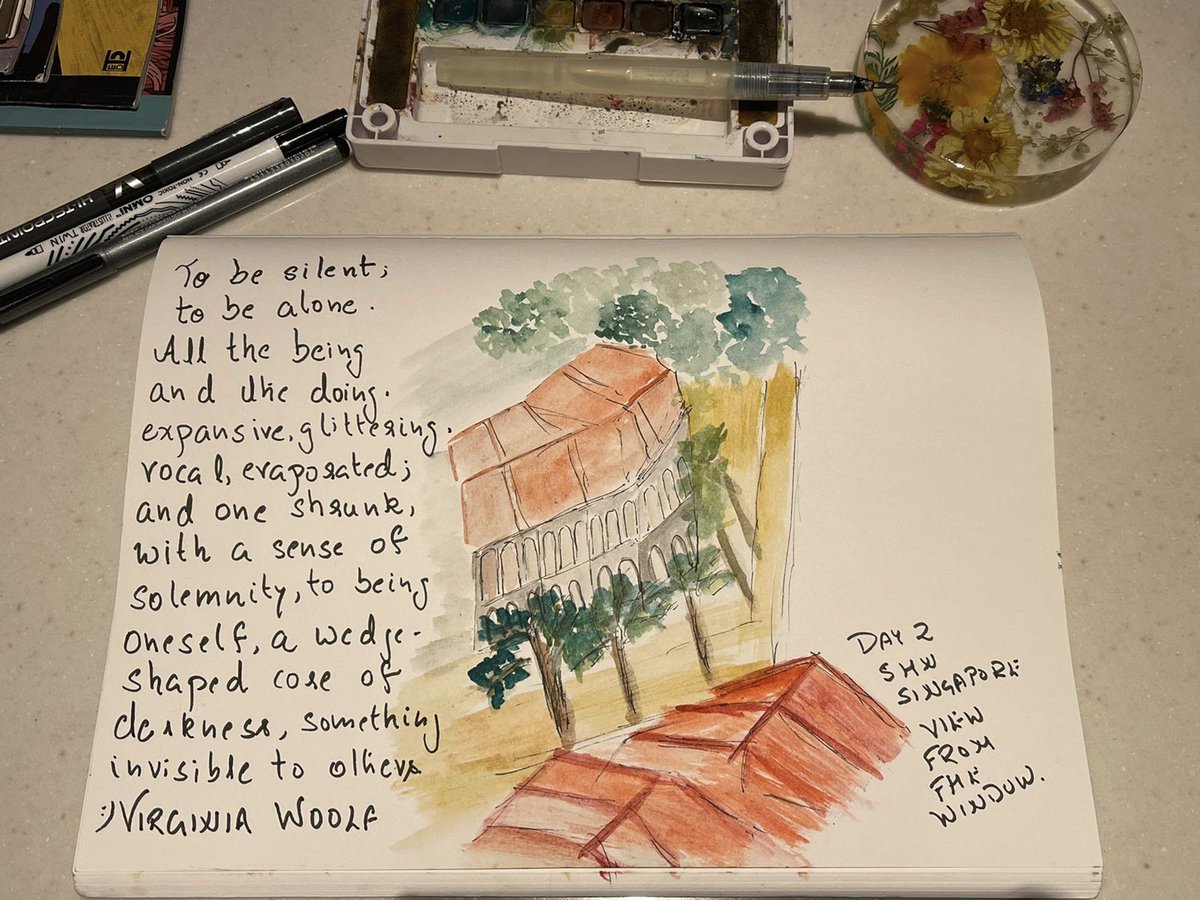 To be silent;
to be alone.
All the being
and the doing.
expansive, glittering.
vocal, evaporated;
and one shrunk,
with a sense of
solemnity, to being
oneself, a wedge-
shaped core of
darkness, something
invisible to others
:) VIRGINIA WOOLF
DAY 2
SHN
SINGAPORE
VIEW
FROM
THE
WINDOW.
HI-TECPOINT
OMNI ILLUSTRATOR TWIN
CE NON-TOXIC